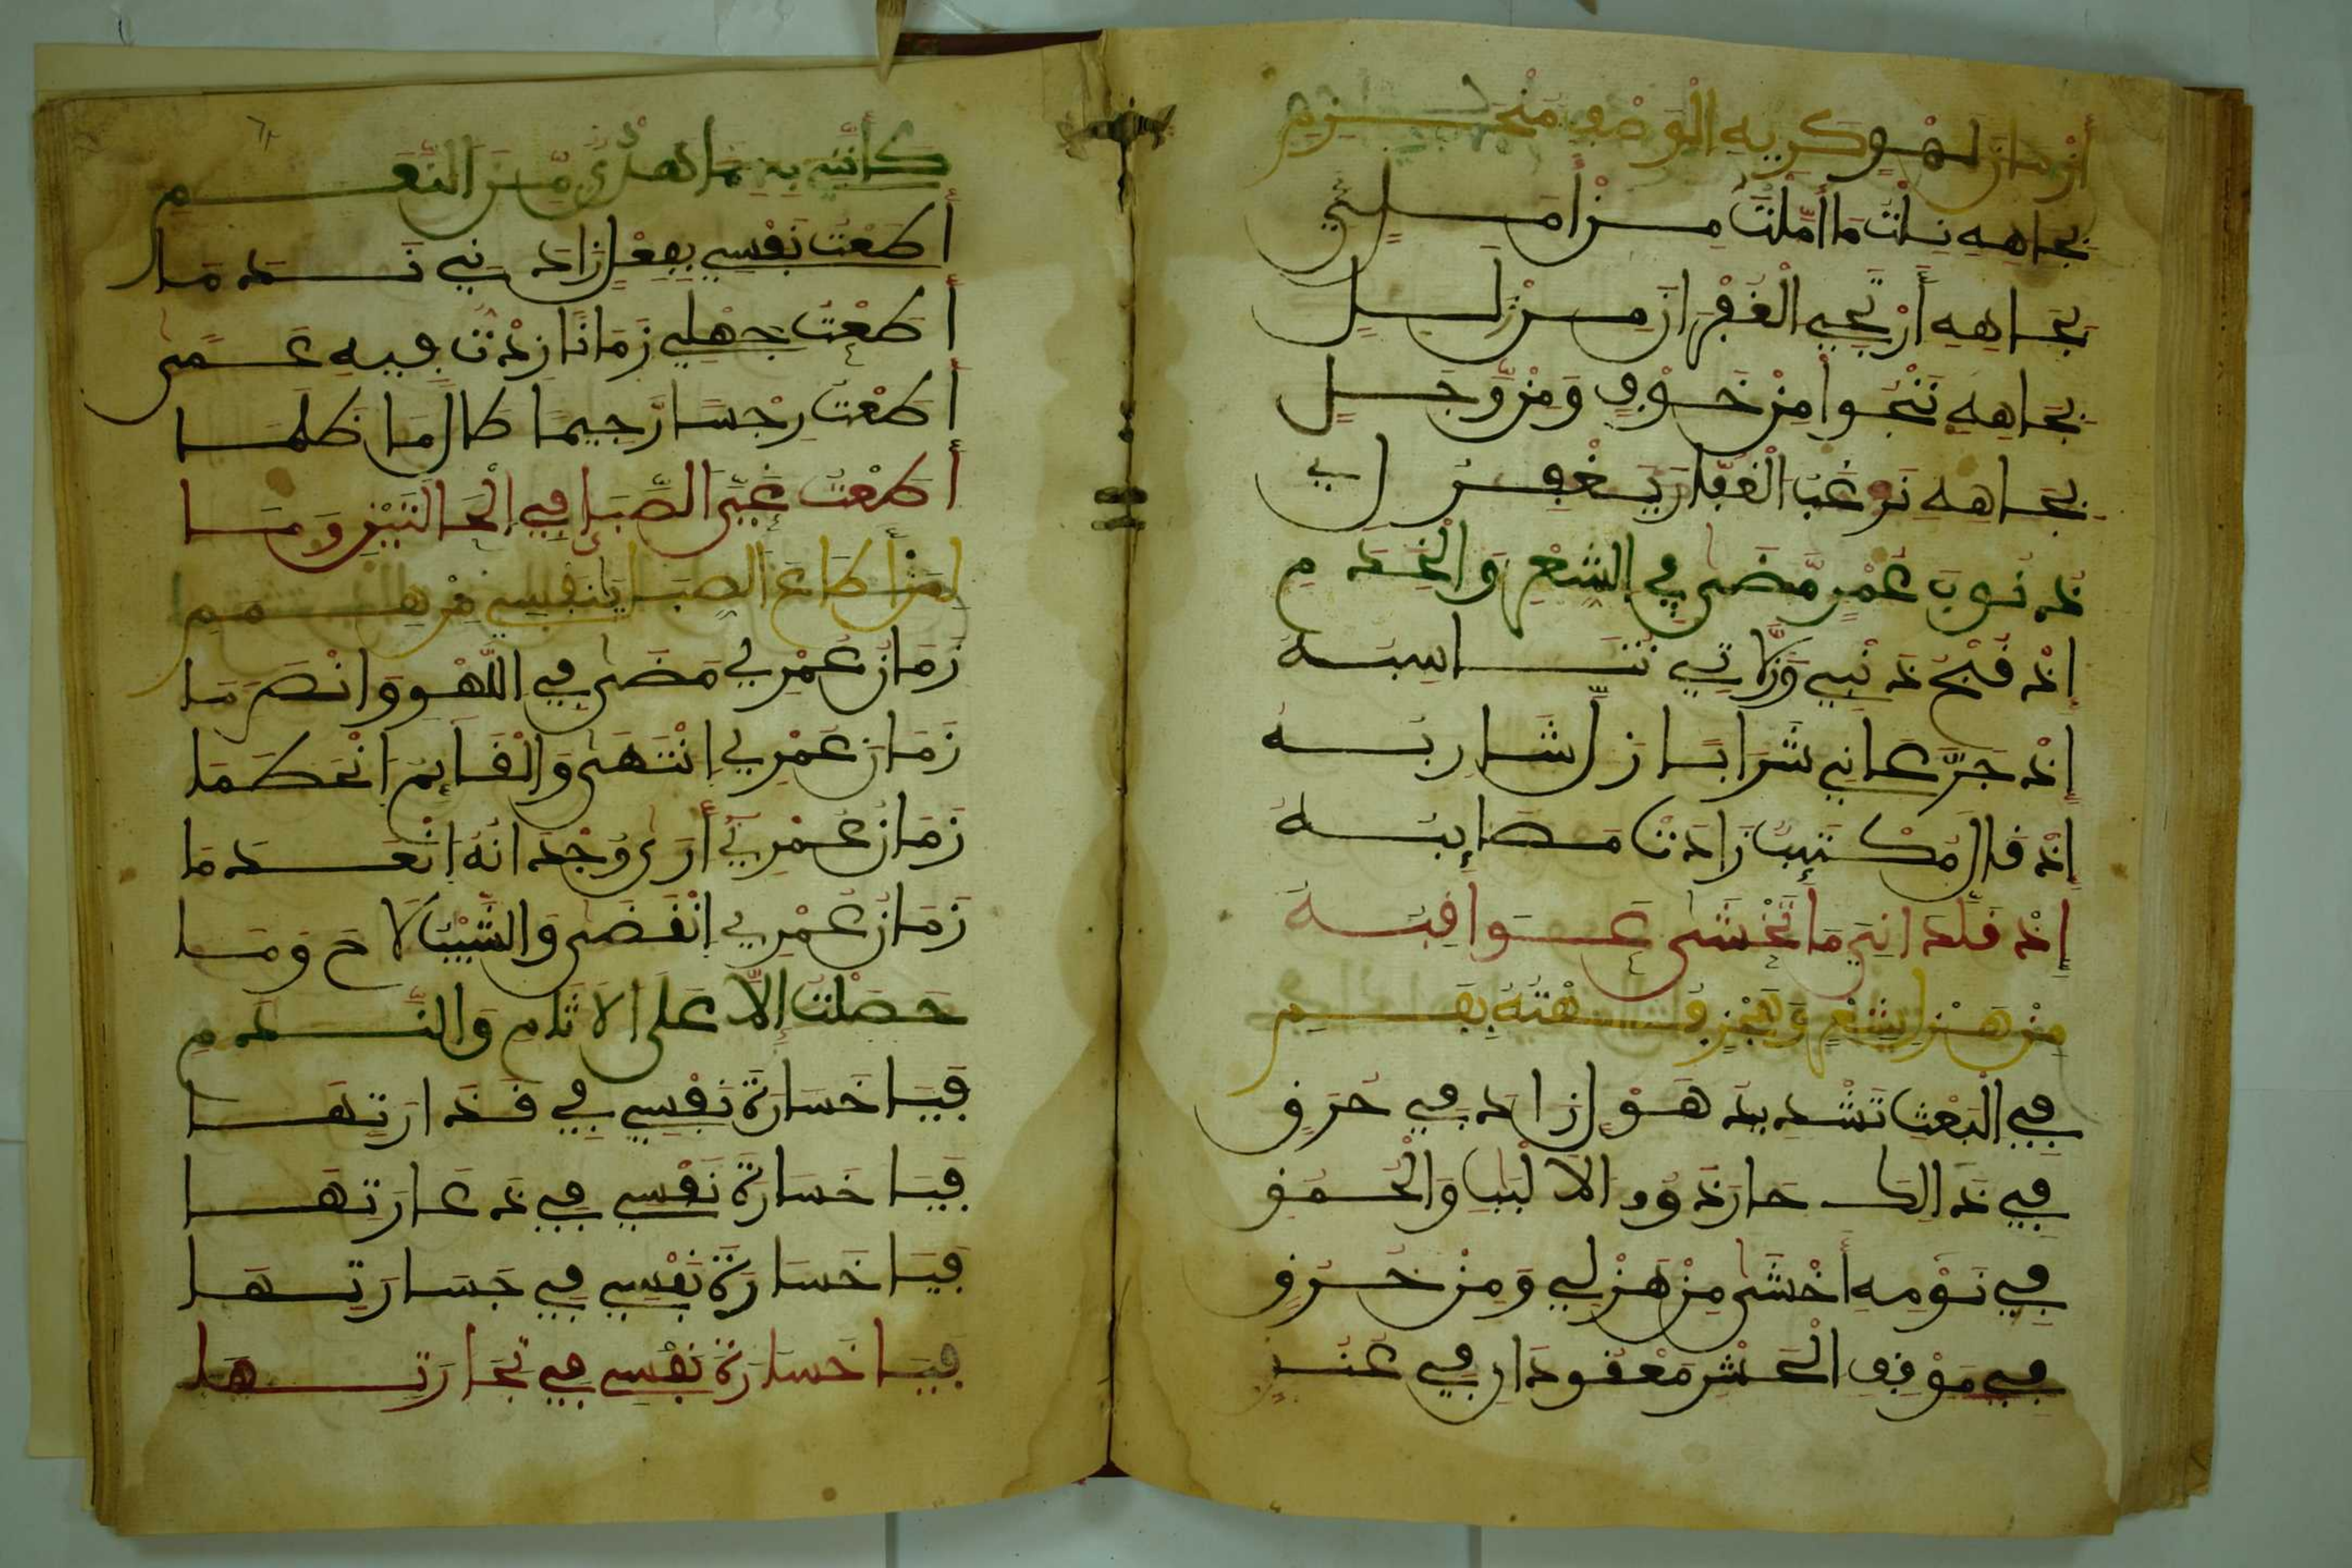 أزمان لهو كريه الوصف منخرم
بجاهه نلت ما أملت من أملي
بجاهه أرتجي الغفران من زلل
بجاهه ننجوا من خوف ومن وجل
بجاهه نرغب الغفار يغفر لي
ذنوب عمر مضى في الشعر والخدم
إذ قبح ذنبي وزلاتي تناسبه
إذ جرعاني شرابا زل شاربه
إذ قال مكتئب زادت مصائبه
إذ قلدانى ما تخشى عواقبه
من هزل شعر
في البعث تشديد هول زاد في حرف
في ذالك حار ذوو الالبب والحمف
في نومه أخشى من هزلي ومن خرف
في موقف الحشر معقودا في عنف
كأنني بهما هدي من النعم
أطعت نفسي بفعل زادني ندما
أطعت جهلي زمانا زدت فيه عمى
أطعت رجسا رجيما طال ما ظلما
أطعت غي الصبا في الحالتين وما
لمن أطاع الصبا
زمان عمري مضى في اللهو وانصرما
زمان عمري انتهى والقائم انحطما
زمان عمري أرى وجدانه انعدما
زمان عمري انقضى والشيب لاح وما
حصلت إلا على الاثام والندم
فيا خسارة نفسي في قذارتها
فيا خسارة نفسي في ذعارتها
فيا خسارة نفسي في جسارتها
فيا خسارة نفسي في تجارتها